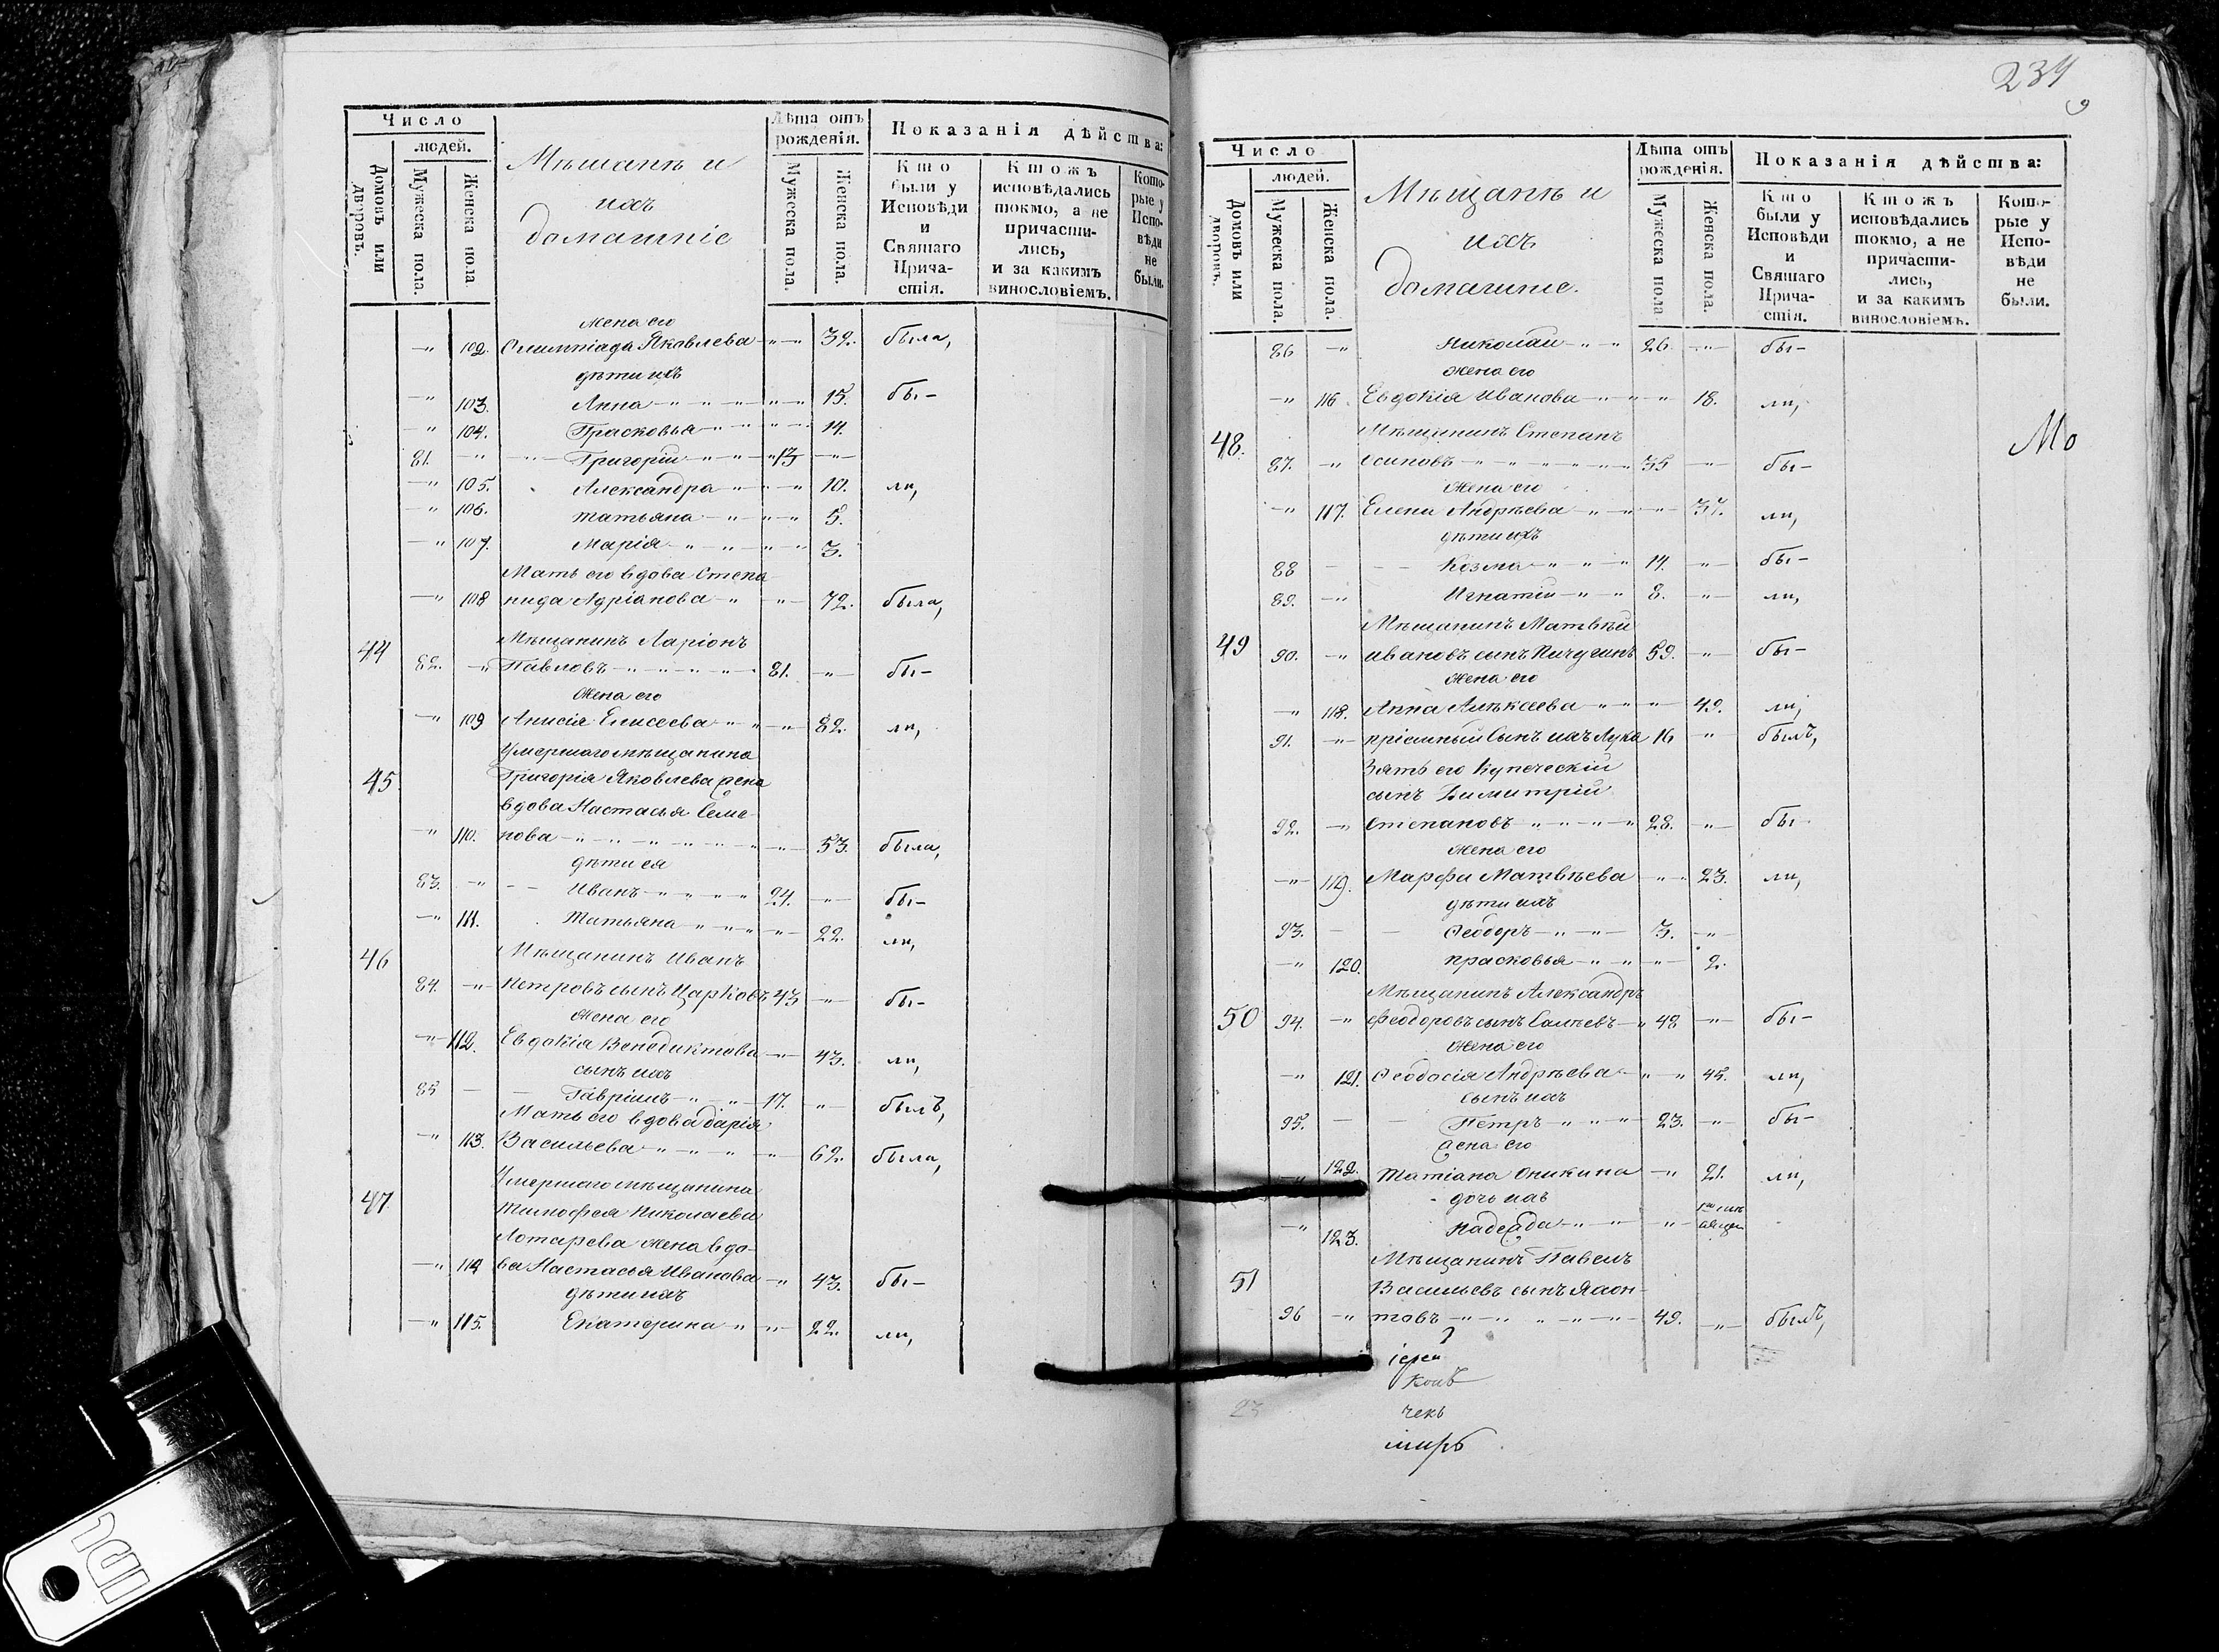 Число
людей.
Домовъ или дворовъ.
Мужеска пола.
Женска пола.
Мѣщанѣ и
ихъ
домашніе
Лѣта отъ рожденія.
Мужеска пола.
Женска пола.
Показанія дѣйства:
Кто были у Исповѣди и Святаго Причастія.
Ктожъ исповѣдались токмо, а не причастились, и за какимъ винословіемъ.
Которые у Исповѣди не были.
жена его
—"  102. Олимпіада Яковлева —"— 32. была,
дѣти ихъ
—"  103. Анна —"—"—"— 15. бы-
—"  104. Прасковья —"—"— 14.
81. —" Григорій —"—"— 13 —"—
—"  105. Александра —"—"— 10. ли,
—"  106. Татьяна —"—"—" 5.
—"  107. Марія —"—"—" 3.
Мать его вдова Степа
—"  108 нида Адріанова —"—"— 72. была,
44 Мѣщанинъ Ларіонъ
82. —" Павловъ —"—"—"— 81. —"— бы-
жена его
—"  109 Анисія Елисеева —"—"— 82. ли,
умершаго мѣщанина
45 Григорія Яковлева жена
вдова Настасья Семе
—"  110. нова —"—"—"—"— 53. была,
дѣти ея
83. —" Иванъ —"—"—" 24. —"— бы-
—"  111. Татьяна —"—"—"— 22. ли,
46 Мѣщанинъ Иванъ
84. —"— Петровъ сынъ Царковъ 43 —"— бы-
жена его
—"  112. Евдокія Венедиктова —"— 43. ли,
сынъ ихъ
85 — — Гавріилъ —"—"— 17. —"— былъ,
Мать его вдова Дарія
—"  113. Васильева —"—"—"— 62. была,
47 Умершаго мѣщанина
Тимофея Николаева
Лотарева жена вдо-
—"  114 ва Настасья Иванова —" 43. бы-
дѣти ихъ
—"  115. Екатерина —"—"— 22. ли,
234
9
Число
людей.
Домовъ или дворовъ.
Мужеска пола.
Женска пола.
Мѣщанѣ и
ихъ
домашніе.
Лѣта отъ рожденія.
Мужеска пола
Женска пола.
Показанія дѣйства:
Кто были у Исповѣди и Святаго Причастія.
Ктожъ исповѣдались токмо, а не причастились, и за какимъ винословіемъ.
Которые у Исповѣди не были.
86 —" Николай —"—" 26 —"— бы-
жена его
—"  116. Евдокія Иванова —"—"—" 18. ли,
48. Мѣщанинъ Степанъ
Мо
87. —" Осиповъ —"—"—"—" 35 —"— бы-
жена его
—"  117. Елена Андрѣева —"—"— 37. ли,
дѣти ихъ
88 — — Козма —"—"—" 14. —"— бы-
89. —" Игнатій —"—" 8. —"— ли,
Мѣщанинъ Матвѣй
49 90. —" ивановъ сынъ Пичугинъ 59. —"— бы-
жена его
—"  118. Анна Алѣкѣева —"—"— 49. ли,
91. —" пріемный сынъ ихъ Лука 16 —" былъ,
Зять его Купеческій
сынъ Димитрій
92. —" Степановъ —"—"—" 28. —"— бы-
жена его
—"  119. Марфа Матвѣева —"—" 23. ли,
дѣти ихъ
93. — — Ѳеодоръ —"—"— 3. —"—
—"  120. прасковья —"—"—"— 2.
Мѣщанинъ Александръ
50 94. —" Феодоровъ сынъ —" 48 —"— бы-
жена его
—"  121. Ѳеодосія Андрѣева —"—" 45. ли,
сынъ ихъ
95. — — Петръ —"—"—" 23. —"— бы-
жена его
—"  122. Татіана Оникина —" 21. ли,
дочь ихъ
—"  123. Надежда —"—"—"
Мѣщанинъ Павелъ
51 Васильевъ сынъ
96 —" товъ —"—"—"—"— 49. —"— былъ,
іереи
23